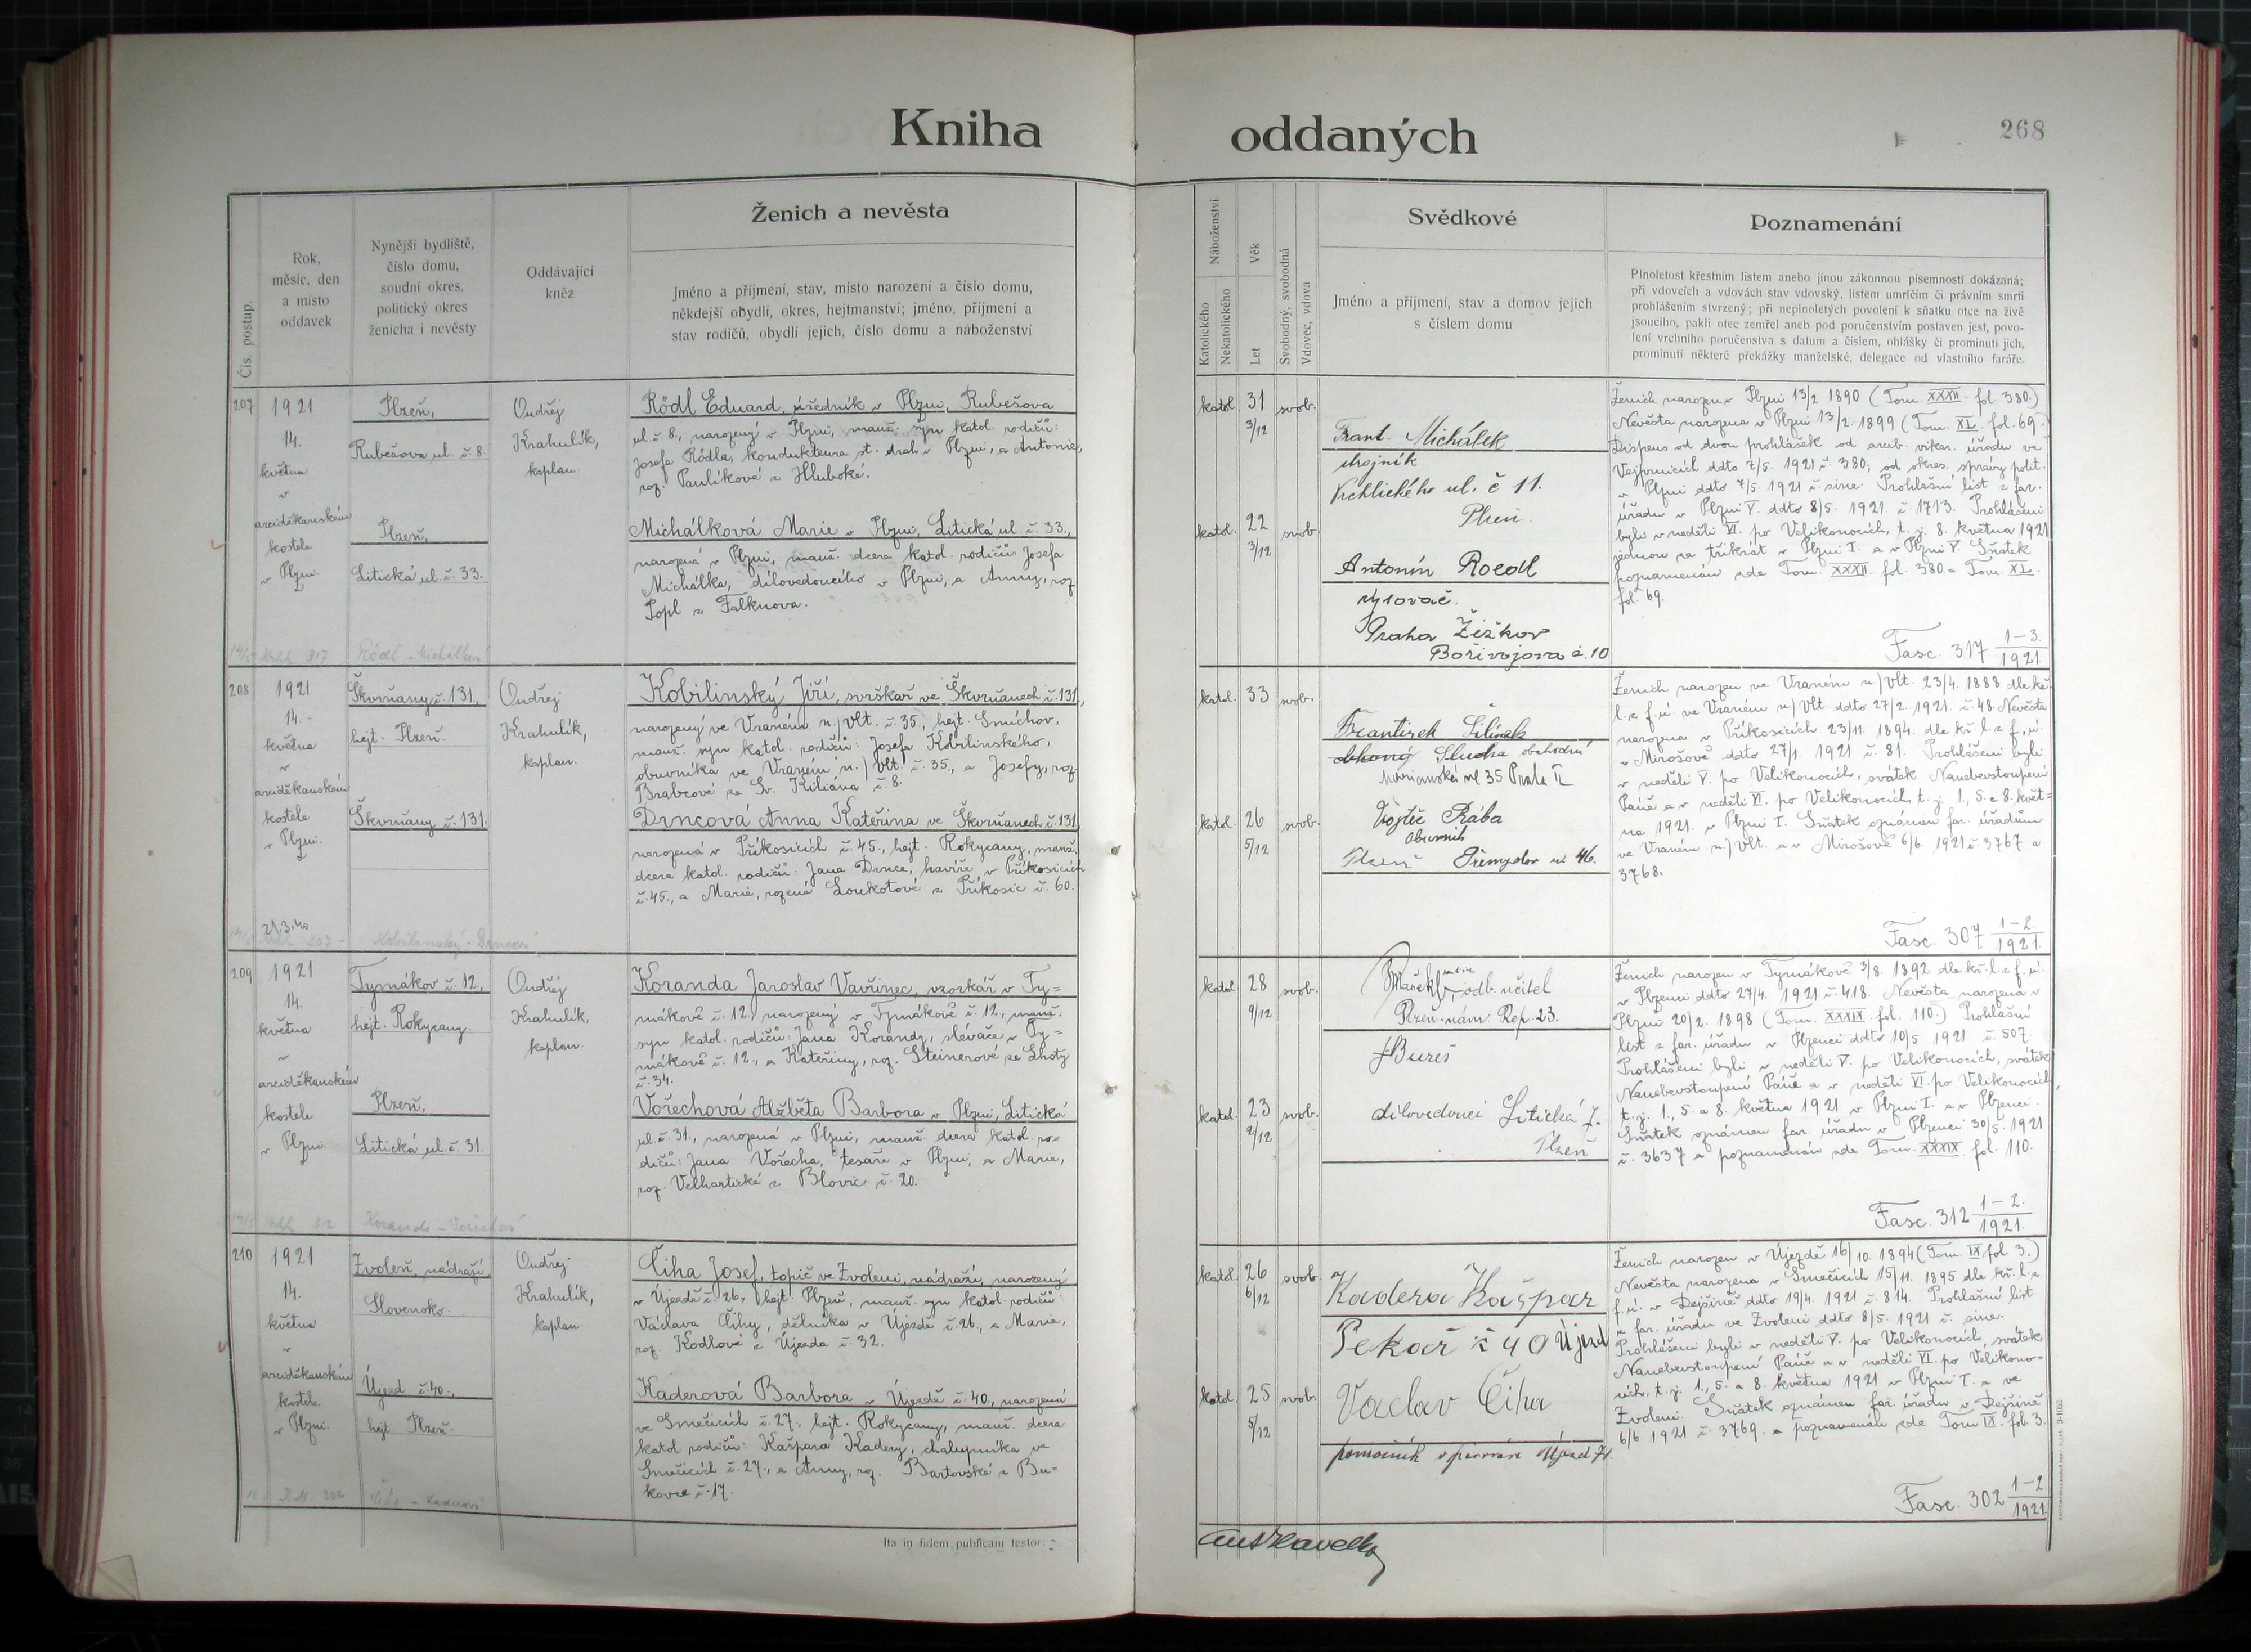 Kniha
oddaných
268
Čís. postup.
Rok,
měsíc, den
a místo
oddavek
Nynější bydliště,
číslo domu,
soudní okres,
politický okres
ženicha i nevěsty
Oddávající
kněz
Ženich a nevěsta
Jméno a příjmení, stav, místo narození a číslo domu,
někdejší obydlí, okres, hejtmanství; jméno, příjmení a
stav rodičů, obydlí jejich, číslo domu a náboženství
Náboženství
Katolického
Nekatolického
Věk
Let
Svobodný, svobodná
Vdovec, vdova
Svědkové
Jméno a příjmení, stav a domov jejich
s číslem domu
Poznamenání
Plnoletost křestním listem anebo jinou zákonnou písemností dokázaná;
při vdovcích a vdovách stav vdovský, listem umrlčím či právním smrti
prohlášením stvrzený; při neplnoletých povolení k sňatku otce na živě
jsoucího, pakli otec zemřel aneb pod poručenstvím postaven jest, povo-
lení vrchního poručenstva s datum a číslem, ohlášky či prominutí jich,
prominutí některé překážky manželské, delegace od vlastního faráře.
207
1921
14.
května
v
arciděkanském
kostele
v Plzni.
Plzeň,
Rubešova ul. č. 8
Plzeň,
Litická ul. č. 33.
Ondřej
Krahulík,
kaplan.
Rödl Eduard, úředník v Plzni, Rubešova
ul. č. 8., narozený v Plzni, manž. syn katol. rodičů:
Josefa Rödla, kondukteura st. drah v Plzni, a Antonie,
roz. Paulíkové z Hluboké.
Michálková Marie v Plzni, Litická ul. č. 33.,
narozená v Plzni, manž. dcera katol. rodičů: Josefa
Michálka, dílovedoucího v Plzni, a Anny, roz.
Popl z Falknova.
katol. 31 3/12 svob.
katol. 22 3/12 svob.
Frant. Michálek
strojník
Vrchlického ul. č 11.
Plzeň.
Antonín Roedl
rysovač.
Praha Žižkov
Bořivojova č. 10
Ženich narozen v Plzni 13/2 1890 (Tom. XXXII. fol. 380.)
Nevěsta narozena v Plzni 13/2 1899 (Tom. XL. fol. 69.)
Dispens od dvou prohlášek od arcib. vikar. úřadu ve
Vejprnicích ddto 7/5. 1921 č. 380; od okres. správy polit.
v Plzni ddto 7/5. 1921 č. sine. Prohlašní list z far.
úřadu v Plzni V. ddto 8/5. 1921. č. 1713. Prohlášeni
byli v neděli VI. po Velikonocích, t. j. 8. května 1921
jednou za třikrát v Plzni I. a v Plzni V. Sňatek
poznamenán zde Tom. XXXII. fol. 380. a Tom. XL.
fol. 69.
Fasc. 317 1-3. 1921.
Rödl - Michálková
208
1921
14.
května
v
arciděkanském
kostele
v Plzni.
21.3.40
Škvrňany č. 131.,
hejt. Plzeň.
Škvrňany č. 131.
Ondřej
Krahulík,
kaplan.
Kobilinský Jiří, svrškař ve Škvrňanech č. 131.,
narozený ve Vraném n./Vlt. č. 35., hejt. Smíchov,
manž. syn katol. rodičů: Josefa Kobilinského,
obuvníka ve Vraném n./Vlt. č. 35., a Josefy, roz.
Brabcové ze Sv. Kiliána č. 8.
Drncová Anna Kateřina ve Škvrňanech č. 131
narozená v Příkosicích č. 45., hejt. Rokycany, manž.
dcera katol. rodičů: Jana Drnce, havíře v Příkosicích
č. 45., a Marie, rozené Loukotové z Příkosic č. 60.
katol. 33 svob.
katol. 26 5/12 svob.
František
Sluha obchodní
35 Praha II
Vojtěch Rába
obuvník
Plzeň Přemyslov ul 46.
Ženich narozen ve Vraném n./Vlt. 23/4. 1888 dle kř.
l. z f. ú. ve Vraném n./Vlt. ddto 27/2. 1921. č. 48. Nevěsta
narozena v Příkosicích 23/11. 1894. dle kř. l. z f. ú.
v Mirošově ddto 27/1. 1921 č. 81. Prohlášeni byli
v neděli V. po Velikonocích, svátek Nanebevstoupení
Páně a v neděli VI. po Velikonocích, t. j. 1., 5. a 8. květ=
na 1921. v Plzni I. Sňatek oznámen far. úřadům
ve Vraném n./Vlt. a v Mirošově 6/6. 1921 č. 3767 a
3768.
Fasc. 307 1-2. 1921.
Kobilinský - Drncová
209
1921
14.
května
v
arciděkanském
kostele
v Plzni.
Tymákov č. 12.,
hejt. Rokycany.
Plzeň,
Litická ul. č. 31.
Ondřej
Krahulík,
kaplan.
Koranda Jaroslav Vavřinec, vzorkář v Ty=
mákově č. 12., narozený v Tymákově č. 12., manž.
syn katol. rodičů: Jana Korandy, slévače v Ty=
mákově č. 12., a Kateřiny, roz. Steinerové ze Lhoty
č. 34.
Vořechová Alžběta Barbora v Plzni, Litická
ul. č. 31., narozená v Plzni, manž. dcera katol. ro=
dičů: Jana Vořecha, tesaře v Plzni, a Marie,
roz. Velhartické z Blovic č. 20.
katol. 28 9/12 svob.
katol. 23 2/12 svob.
odb. učitel
Plzeň. nám. Rep. 23.
Bureš
dílovedoucí Litická 7.
Plzeň
Ženich narozen v Tymákově 3/8. 1892 dle kř. l. z f. ú.
v Plzenci ddto 27/4. 1921 č. 418. Nevěsta narozena v
Plzni 20/2. 1898 (Tom. XXXIX. fol. 110.) Prohlašní
list z far. úřadu v Plzenci ddto 10/5 1921 č. 507.
Prohlášeni byli v neděli V. po Velikonocích, svátek
Nanebevstoupení Páně a v neděli VI. po Velikonocích,
t. j. 1., 5. a 8. května 1921 v Plzni I. a v Plzenci.
Sňatek oznámen far. úřadu v Plzenci 30/5. 1921
č. 3637 a poznamenán zde Tom. XXXIX. fol. 110.
Fasc. 312 1-2. 1921.
Koranda - Vořechová
210
1921
14.
května
v
arciděkanském
kostele
v Plzni.
Zvoleň, nádraží
Slovensko.
Újezd č. 40.,
hejt. Plzeň.
Ondřej
Krahulík,
kaplan
Čiha Josef, topič ve Zvoleni, nádraží, narozený
v Újezdě č. 26., hejt. Plzeň, manž. syn katol. rodičů
Václava Čihy, dělníka v Újezdě č. 26., a Marie,
roz. Kodlové z Újezda č. 32.
Kaderová Barbora v Újezdě č. 40., narozená
ve Smečicích č. 27., hejt. Rokycany, manž. dcera
katol. rodičů: Kašpara Kadery, chalupníka ve
Smečicích č. 27., a Anny, roz. Bartovské z Bu=
kovce č. 17.
katol. 26 6/12 svob
katol. 25 5/12 svob.
Kadera Kašpar
Pekař č 40 Újezd
Vaclav Čiha
pomocník v pivováře Újezd 71.
Ženich narozen v Újezdě 16/10. 1894 (Tom. IX. fol. 3.)
Nevěsta narozena v Smečicích 15/11. 1895 dle kř. l. z
f. ú. v Dejšině ddto 19/4. 1921 č. 814. Prohlašní list
z far. úřadu ve Zvoleni ddto 8/5. 1921 č. sine.
Prohlášeni byli v neděli V. po Velikonocích, svátek
Nanebevstoupení Páně a v neděli VI. po Velikono=
cích, t. j. 1., 5. a 8. května 1921 v Plzni I. a ve
Zvoleni. Sňatek oznámen far. úřadu v Dejšině
6/6 1921 č. 3769. a poznamenán zde Tom IX. fol. 3.
Fasc. 302 1-2. 1921.
Čiha - Kaderová
Ita in fidem publicam testor: